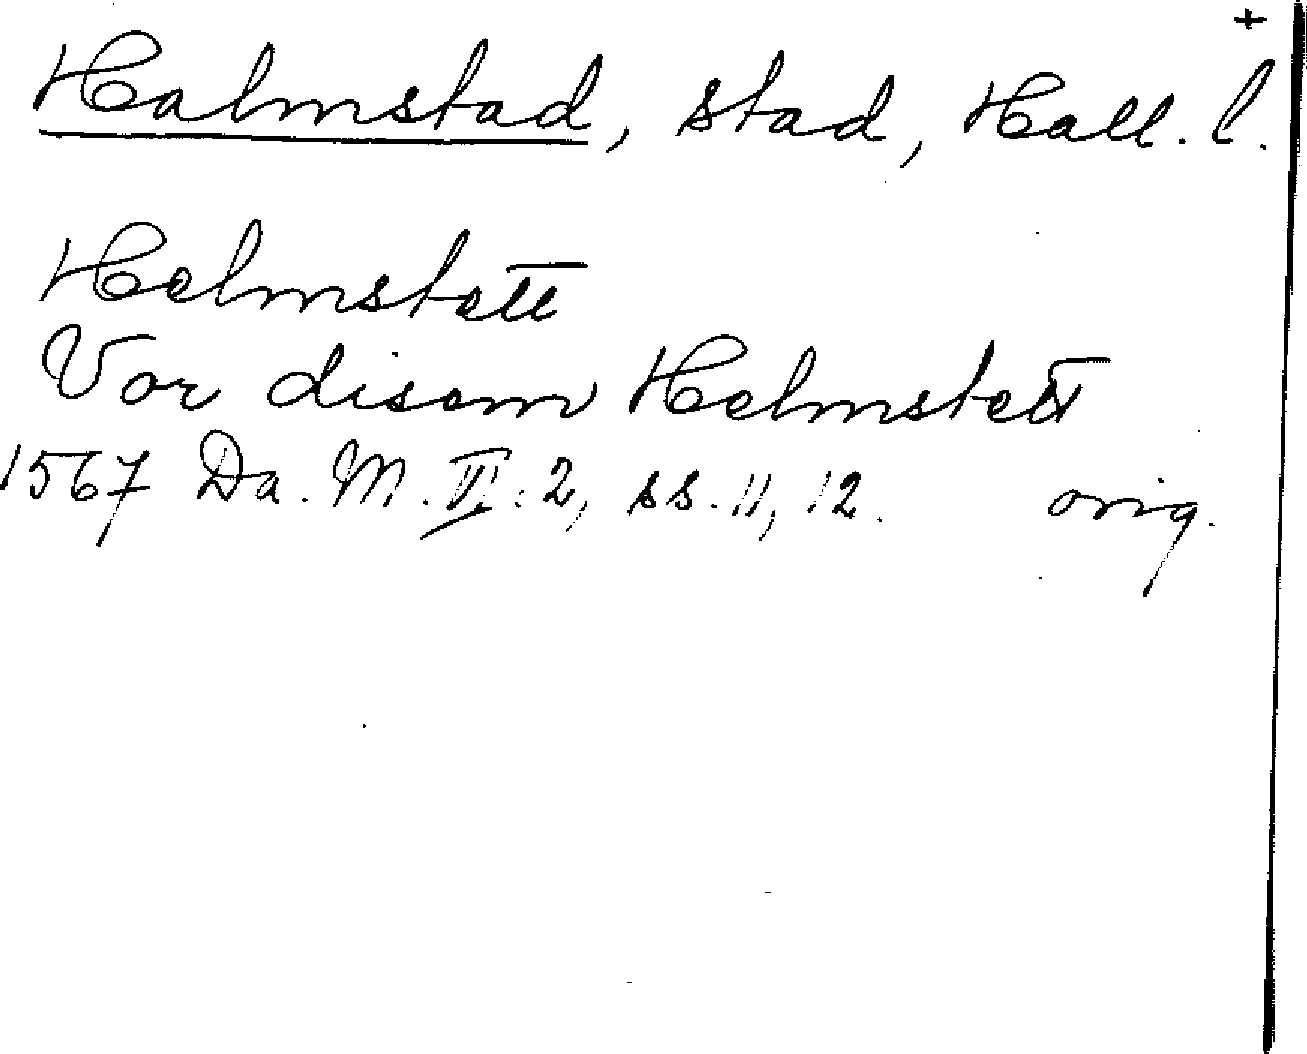 +
Halmstad, stad, Hall. l.
Helmstett
Vor disem Helmstett
1567 Da. M. VI: 2, ss. 11, 12. orig.